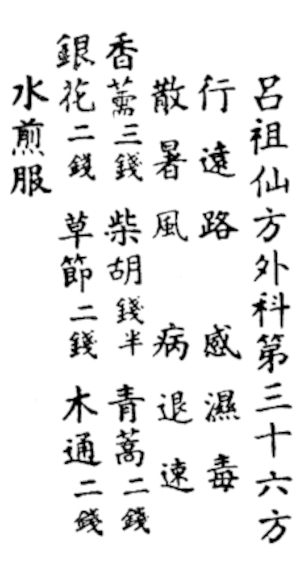 呂祖仙方外科第三十六方
行遠路 感濕毒
散暑風 病退速
香薷三錢 柴胡錢半 青蒿二錢
銀花二錢 草節二錢 木通二錢
水煎服